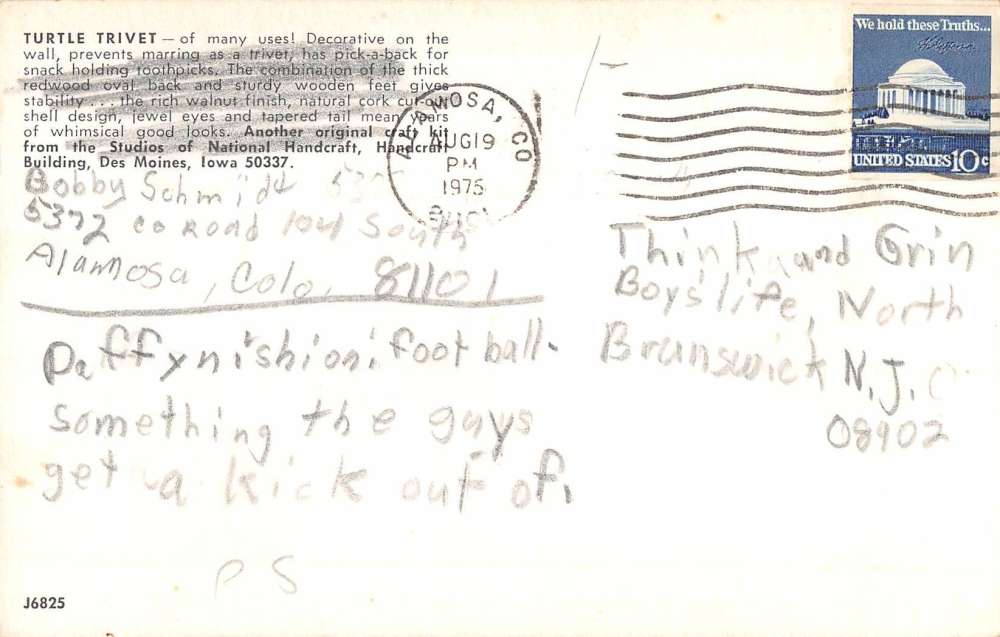 TURTLE TRIVET — of many uses! Decorative on the
wall, prevents marring as a trivet, has pick-a-back for
snack holding toothpicks. The combination of the thick
redwood oval back and sturdy wooden feet gives
stability . . . the rich walnut finish, natural cork cut-out
shell design, jewel eyes and tapered tail mean years
of whimsical good looks. Another original craft kit
from the Studios of National Handcraft, Handcraft
Building, Des Moines, Iowa 50337.
ALAMOSA, CO
AUG 19
PM
1975
We hold these Truths...
UNITED STATES 10c
Bobby Schmidt
5372 co Road 104 South
Alamosa, Colo, 81101
Think and Grin
Boys' life, North
Brunswick N.J.
08902
Daffynishion: football-
something the guys
get a kick out of.
PS
J6825